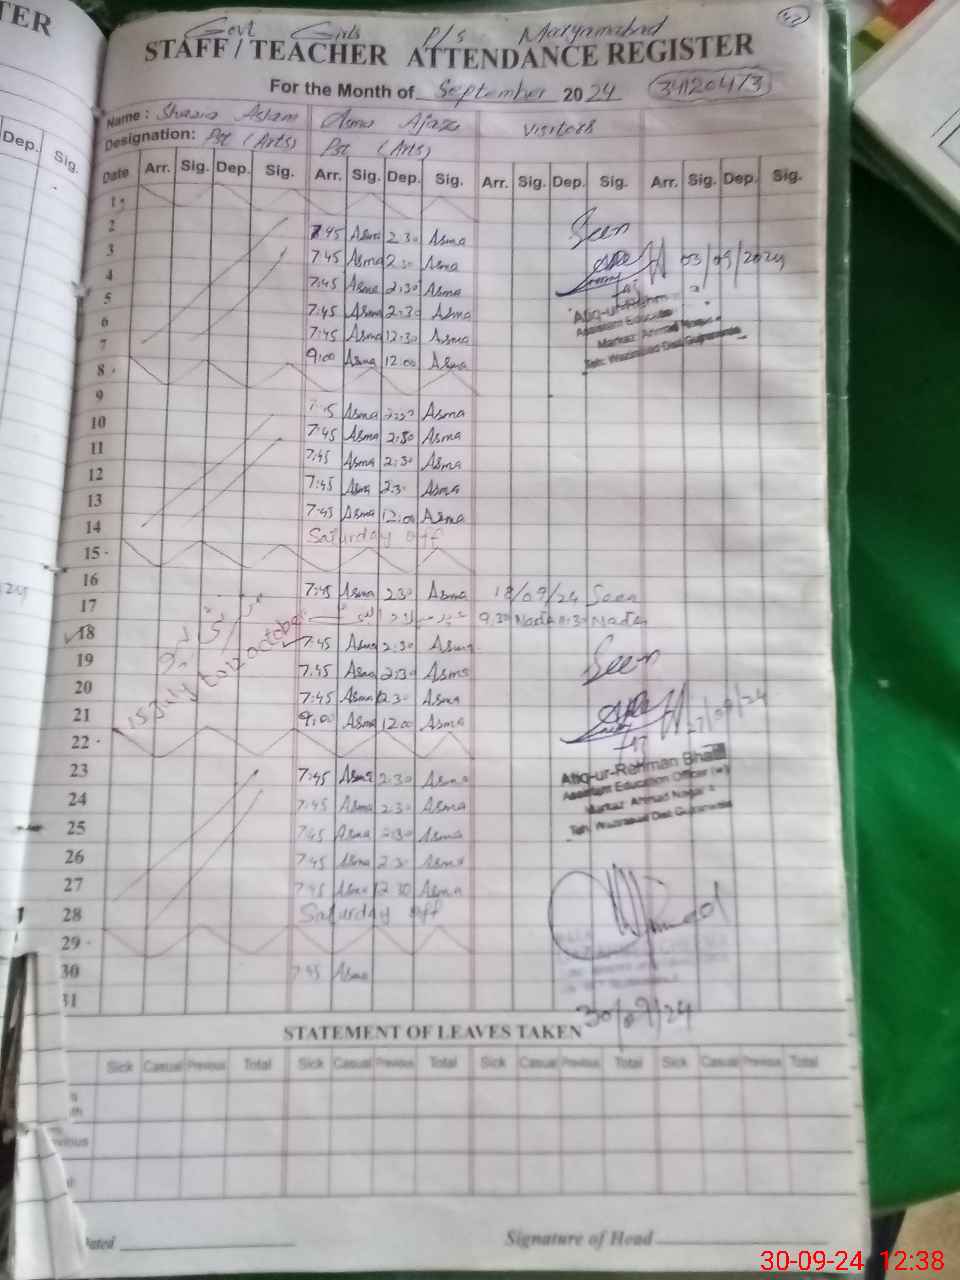 TER
Govt Girls P/S Maryamabad
STAFF / TEACHER ATTENDANCE REGISTER
For the Month of September 2024 34120473
Name : Shazia Aslam Asma Ajaza Visitors
Designation: Pst (Arts) Pst (Arts)
Dep. Sig.
Date Arr. Sig. Dep. Sig. Arr. Sig. Dep. Sig. Arr. Sig. Dep. Sig. Arr. Sig. Dep. Sig.
1
2 7:45 Asma 2:30 Asma Seen
3 7:45 Asma 2:30 Asma 03/09/2024
4 7:45 Asma 2:30 Asma
5 7:45 Asma 2:30 Asma Atiq-ur-Rehman
6 7:45 Asma 12:30 Asma Assistant Education
7 9:00 Asma 12:00 Asma Markaz Ahmad Nagar
Teh: Wazirabad Dist Gujranwala
8
9 Asma Asma
10 7:45 Asma 2:30 Asma
11 7:45 Asma 2:30 Asma
12 7:45 Asma 2:30 Asma
13 7:45 Asma 12:00 Asma
14 Saturday off
15
16 7:45 Asma 2:30 Asma 18/09/24 Seen
17 9:30 Nadia 11:30 Nadia
18 7:45 Asma 2:30 Asma
15 July to 12 October
19 7:45 Asma 2:30 Asma Seen
20 7:45 Asma 12:30 Asma
21 9:00 Asma 12:00 Asma 27/09/24
22
23 7:45 Asma 2:30 Asma Atiq-ur-Rehman Bhatti
24 7:45 Asma 2:30 Asma Assistant Education Officer (w)
25 7:45 Asma 2:30 Asma Markaz Ahmad Nagar
26 7:45 Asma 2:30 Asma Teh: Wazirabad Dist Gujranwala
27 7:45 Asma 12:30 Asma
28 Saturday off
29
30 7:45 Asma
31
30/09/24
STATEMENT OF LEAVES TAKEN
Sick Casual Previous Total Sick Casual Previous Total Sick Casual Previous Total Sick Casual Previous Total
Dated
Signature of Head
30-09-24 12:38